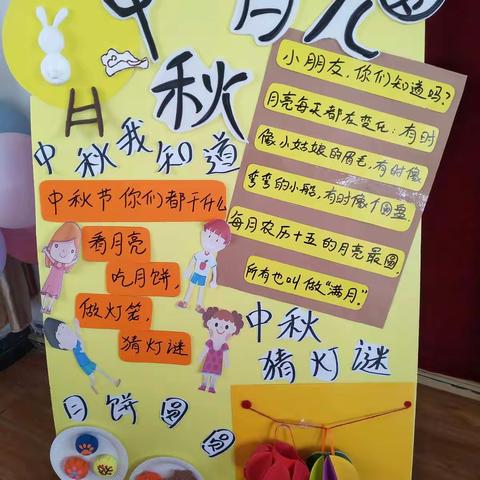 中 月儿圆
秋
小朋友,你们知道吗?
月亮每天都在变化:有时
像小姑娘的眉毛,有时像
弯弯的小船,有时像个圆盘.
每月农历十五的月亮最圆,
所有也叫做“满月”
中秋我知道
中秋节你们都干什么
看月亮
吃月饼,
做灯笼,
猜灯谜
中秋
猜灯谜
月饼圆圆